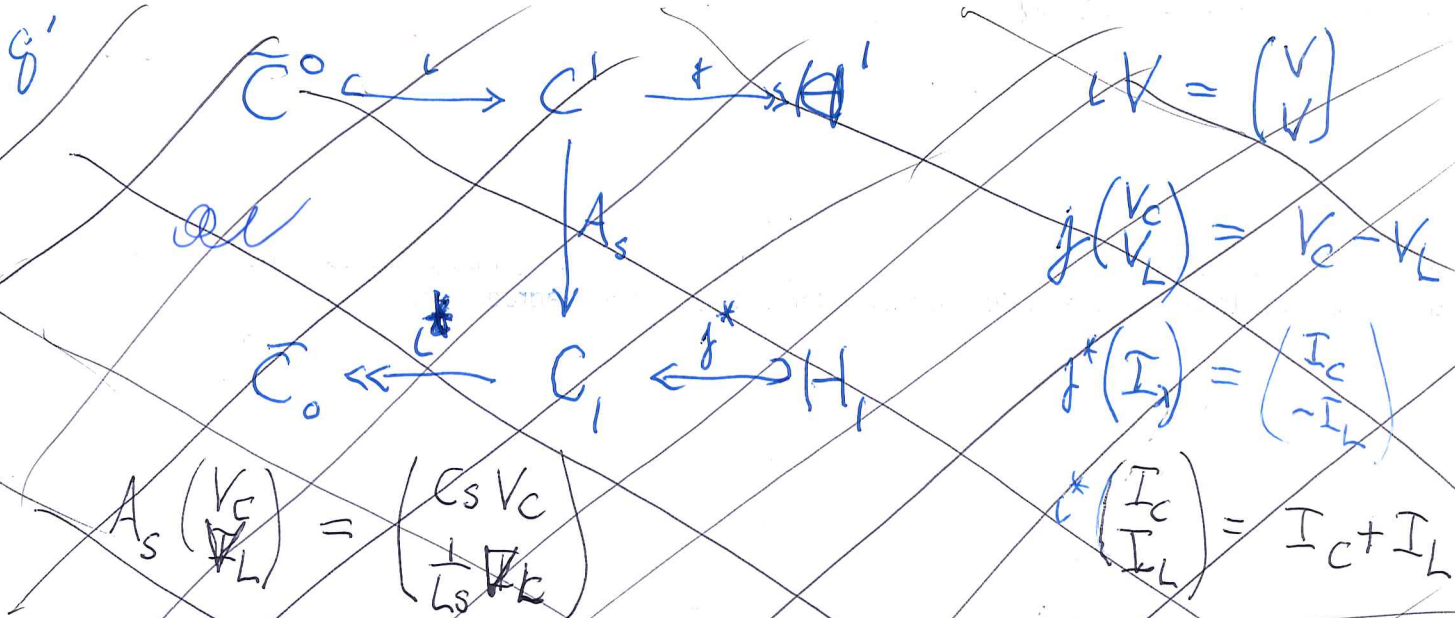 g'
C̄⁰ ↪ι C¹ ↠j H¹
ιV = (V V)
j(V_C V_L) = V_C − V_L
A_s
C̄₀ ↞ι* C₁ ↩j* H₁
j*(I) = (I_C −I_L)
A_s (V_C V_L) = (Cs V_C 1/Ls V_L)
ι*(I_C I_L) = I_C + I_L